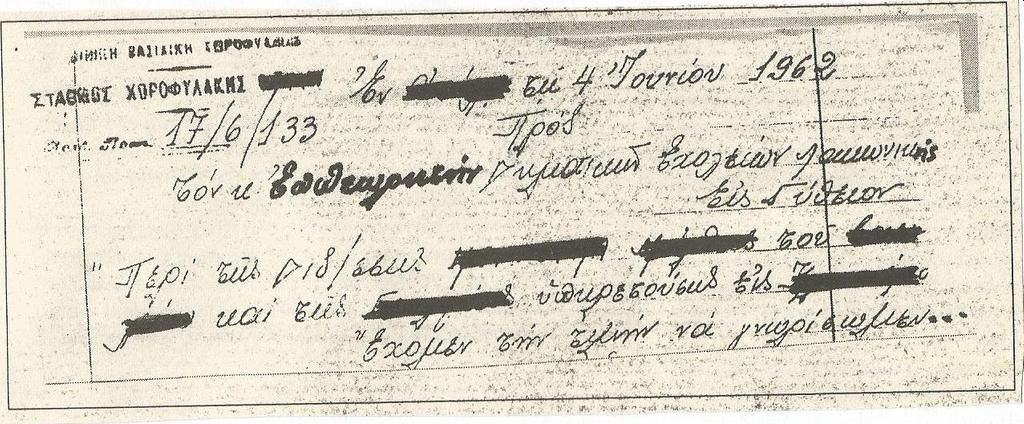 ΒΑΣΙΛΙΚΗ ΧΩΡΟΦΥΛΑΚΗ
ΣΤΑΘΜΟΣ ΧΩΡΟΦΥΛΑΚΗΣ
Ἐν τῇ 4 Ἰουνίου 1962
17/6/133
Πρός
Τόν κ. Ἐπιθεωρητήν Δημοτικῶν Σχολείων Λακωνικῆς
Εἰς Γύθειον
"Περί τῆς διδ/σσης τοῦ
καί τῆς ὑπηρετούσης εἰς
Ἔχομεν τήν τιμήν νά γνωρίσωμεν...